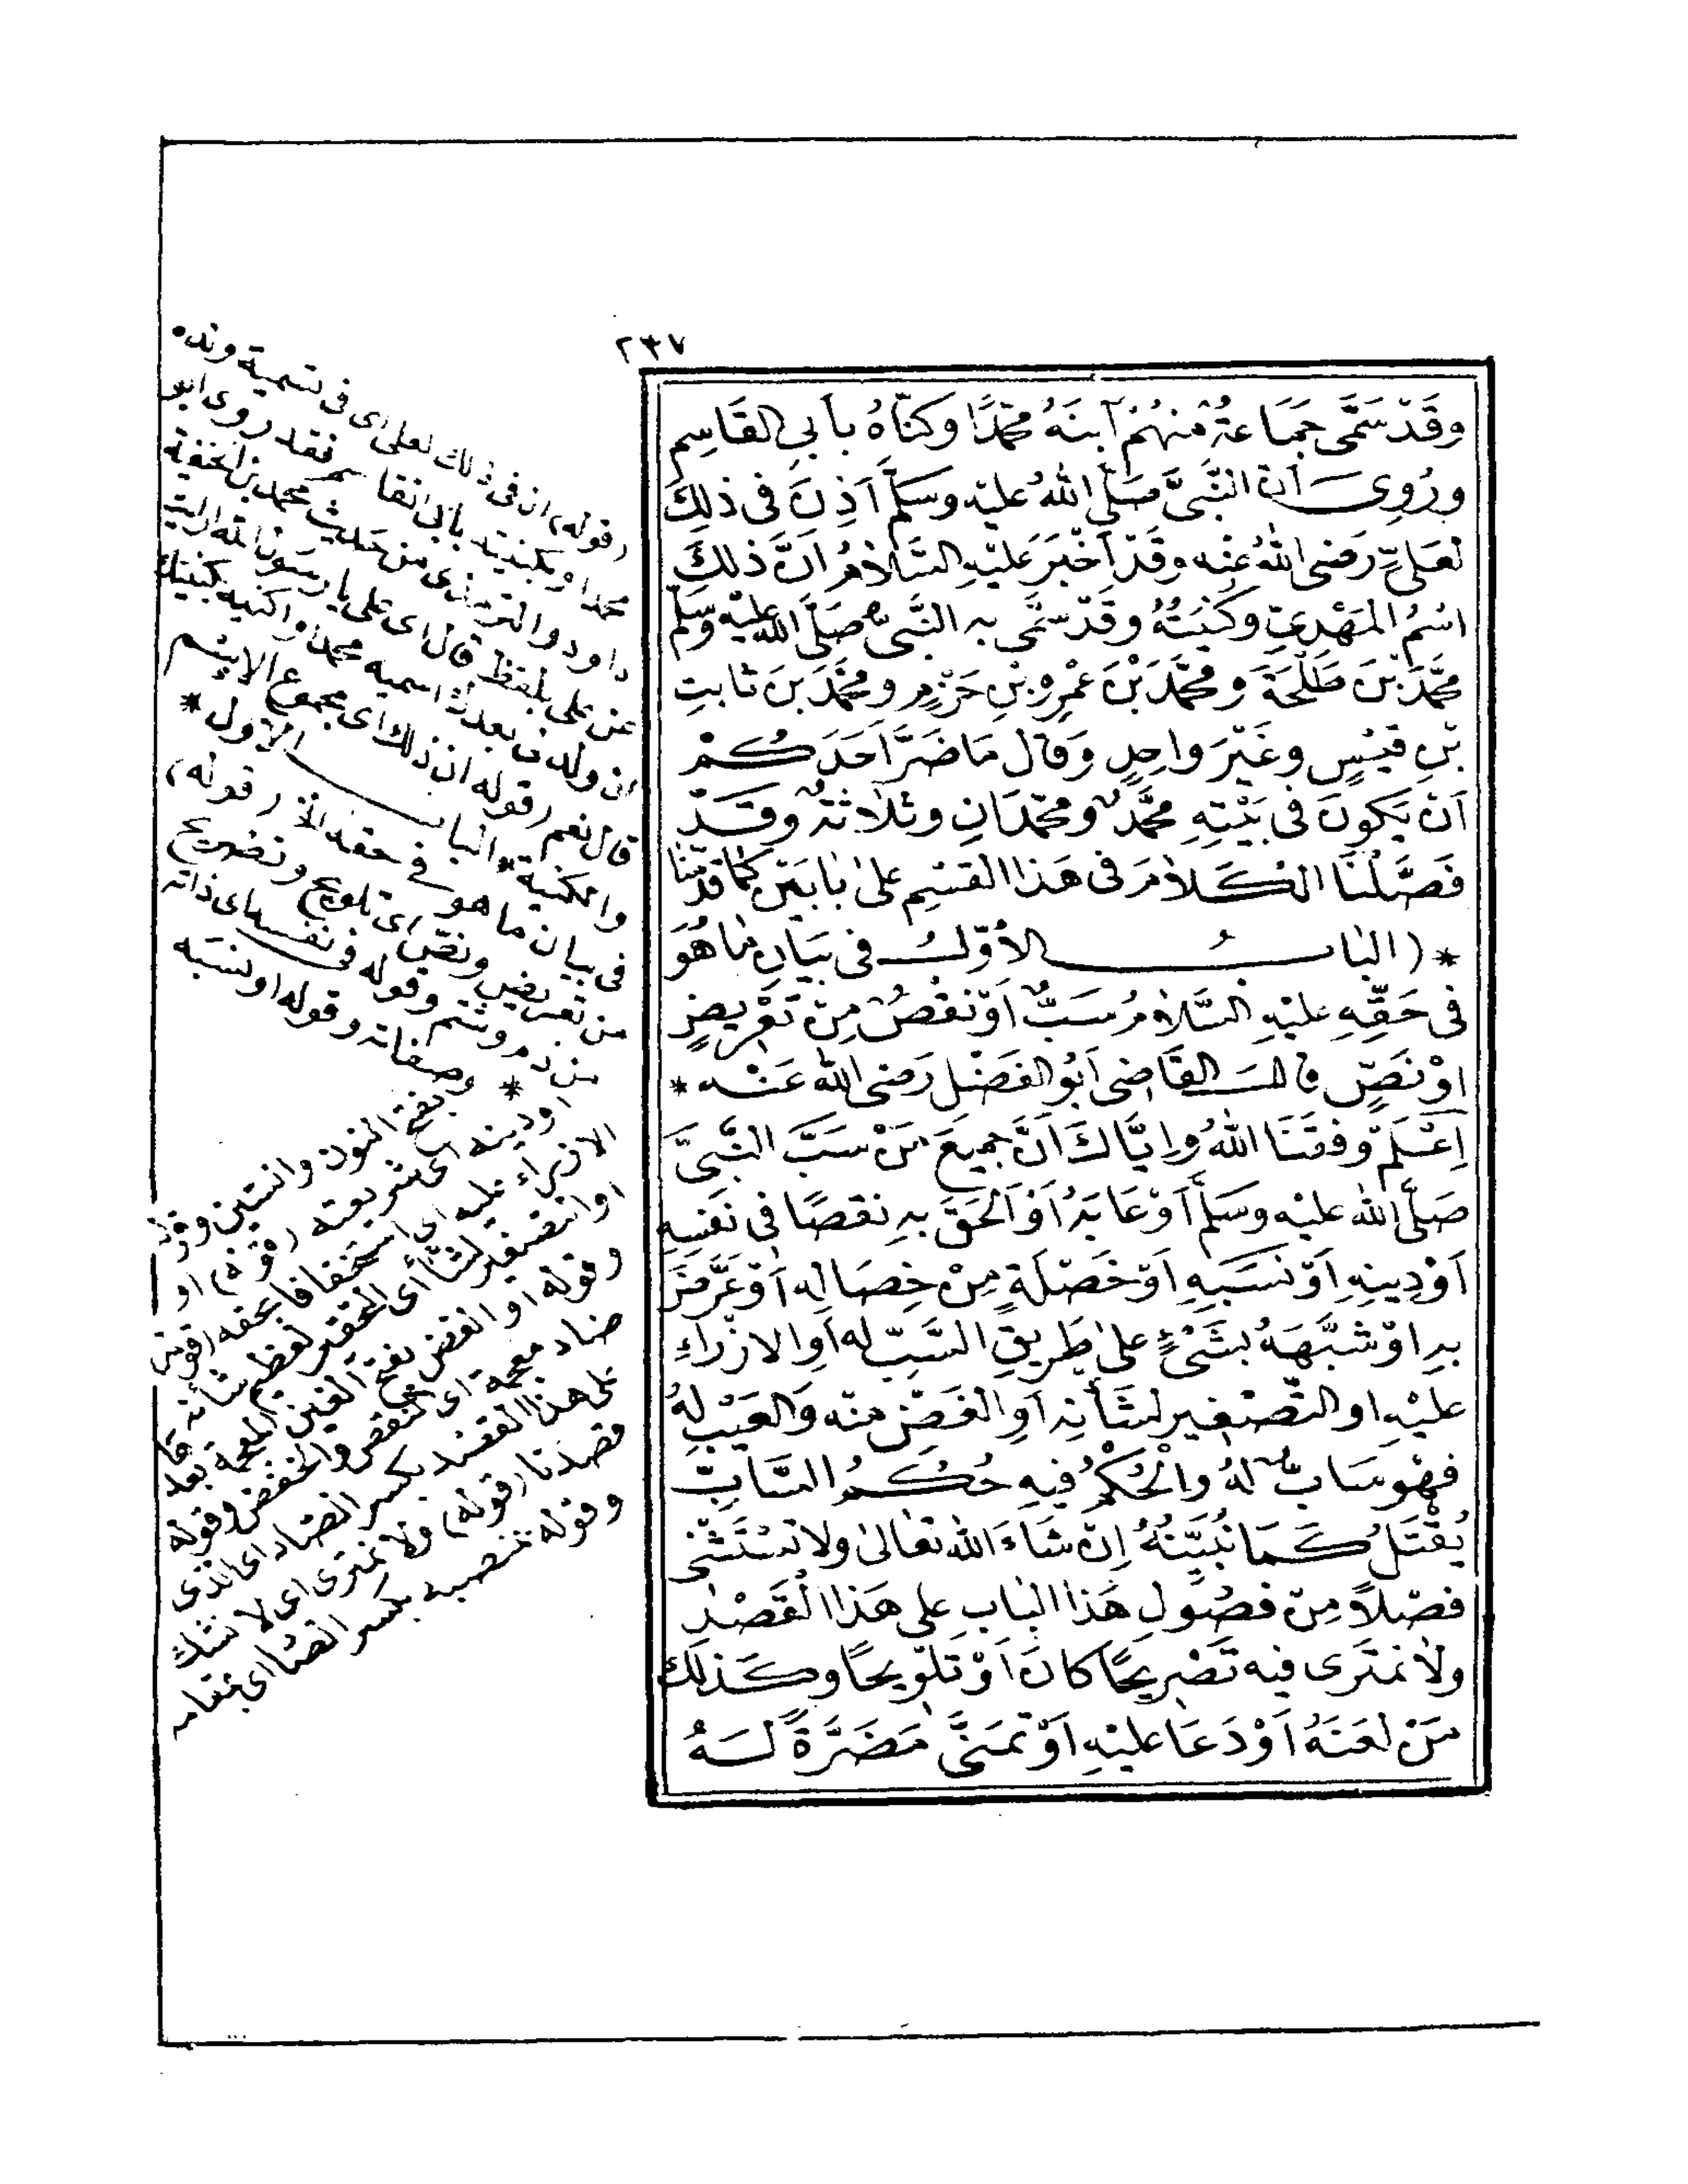 ٢٣٧
وَقَدْ سَمَّى جَمَاعَةٌ مِنْهُمُ ابْنَهُ مُحَمَّدًا وَكَنَّاهُ بِأَبِي الْقَاسِمِ
وَرُوِيَ أَنَّ النَّبِيَّ صَلَّى اللهُ عَلَيْهِ وَسَلَّمَ أَذِنَ فِى ذَلِكَ
لِعَلِيٍّ رَضِىَ اللهُ عَنْهُ وَقَدْ أَخْبَرَ عَلَيْهِ السَّلَامُ أَنَّ ذَلِكَ
اسْمُ الْمَهْدِيِّ وَكُنْيَتُهُ وَقَدْ سَمَّى بِهِ النَّبِىُّ صَلَّى اللهُ عَلَيْهِ وَسَلَّمَ
مُحَمَّدَ بْنَ طَلْحَةَ وَمُحَمَّدَ بْنَ عَمْرِو بْنِ حَزْمٍ وَمُحَمَّدَ بْنَ ثَابِتِ
بْنِ قَيْسٍ وَغَيْرَ وَاحِدٍ وَقَالَ مَا ضَرَّ أَحَدَكُمْ
أَنْ يَكُونَ فِى بَيْتِهِ مُحَمَّدٌ وَمُحَمَّدَانِ وَثَلَاثَةٌ وَقَدْ
فَصَّلْنَا الْكَلَامَ فِى هَذَا الْقِسْمِ عَلَى بَابَيْنِ كَمَا قَدَّمْنَا
* (الْبَابُ الْأَوَّلُ فِى بَيَانِ مَا هُوَ
فِى حَقِّهِ عَلَيْهِ السَّلَامُ سَبٌّ أَوْ نَقْصٌ مِنْ تَعْرِيضٍ
أَوْ نَصٍّ قَالَ الْقَاضِى أَبُو الْفَضْلِ رَضِىَ اللهُ عَنْهُ *
اِعْلَمْ وَفَّقَنَا اللهُ وَإِيَّاكَ أَنَّ جَمِيعَ مَنْ سَبَّ النَّبِىَّ
صَلَّى اللهُ عَلَيْهِ وَسَلَّمَ أَوْ عَابَهُ أَوْ أَلْحَقَ بِهِ نَقْصًا فِى نَفْسِهِ
أَوْ دِينِهِ أَوْ نَسَبِهِ أَوْ خَصْلَةٍ مِنْ خِصَالِهِ أَوْ عَرَّضَ
بِهِ أَوْ شَبَّهَهُ بِشَىْءٍ عَلَى طَرِيقِ السَّبِّ لَهُ أَوِ الْإِزْرَاءِ
عَلَيْهِ أَوِ التَّصْغِيرِ لِشَأْنِهِ أَوِ الْغَضِّ مِنْهُ وَالْعَيْبِ لَهُ
فَهُوَ سَابٌّ لَهُ وَالْحُكْمُ فِيهِ حُكْمُ السَّابِّ
يُقْتَلُ كَمَا نُبَيِّنُهُ إِنْ شَاءَ اللهُ تَعَالَى وَلَا نَسْتَثْنِى
فَصْلًا مِنْ فُصُولِ هَذَا الْبَابِ عَلَى هَذَا الْقَصْدِ
وَلَا نَمْتَرِى فِيهِ تَصْرِيحًا كَانَ أَوْ تَلْوِيحًا وَكَذَلِكَ
مَنْ لَعَنَهُ أَوْ دَعَا عَلَيْهِ أَوْ تَمَنَّى مَضَرَّةً لَهُ
(قوله) اذن فى ذلك لعلى اى فى تسمية ولده
محمدا وتكنيته بابى القاسم فقد روى ابو
داود والترمذى من حديث محمد بن الحنفية
عن على بلفظ قال اى على يا رسول الله ارايت
ان ولد لى بعدك اسميه محمدا واكنيه بكنيتك
قال نعم (قوله ان ذلك) اى مجموع الاسم
والكنية * الباب الاول *
فى بيان ما هو فى حقه الخ (قوله)
من تعريض ونص اى تلويح وتصريح
من ذم وشتم وقوله فى نفسه اى ذاته
وصفاته وقوله او نسبه
* بفتح النون والسين وقوله
او دينه اى شريعته (قوله) او
الازراء عليه اى استخفافا بحقه (قوله)
او التصغير لشأنه اى التحقير لعظم شأنه
وقوله او الغض بفتح الغين المعجمة بعد
ضاد معجمة اى النقص والخفض وقوله
على هذا القصد بكسر الصاد اى الذى
قصدنا (قوله) ولا نمترى اى لا نشك
وقوله بمنصبه بكسر الصاد اى بمقامه